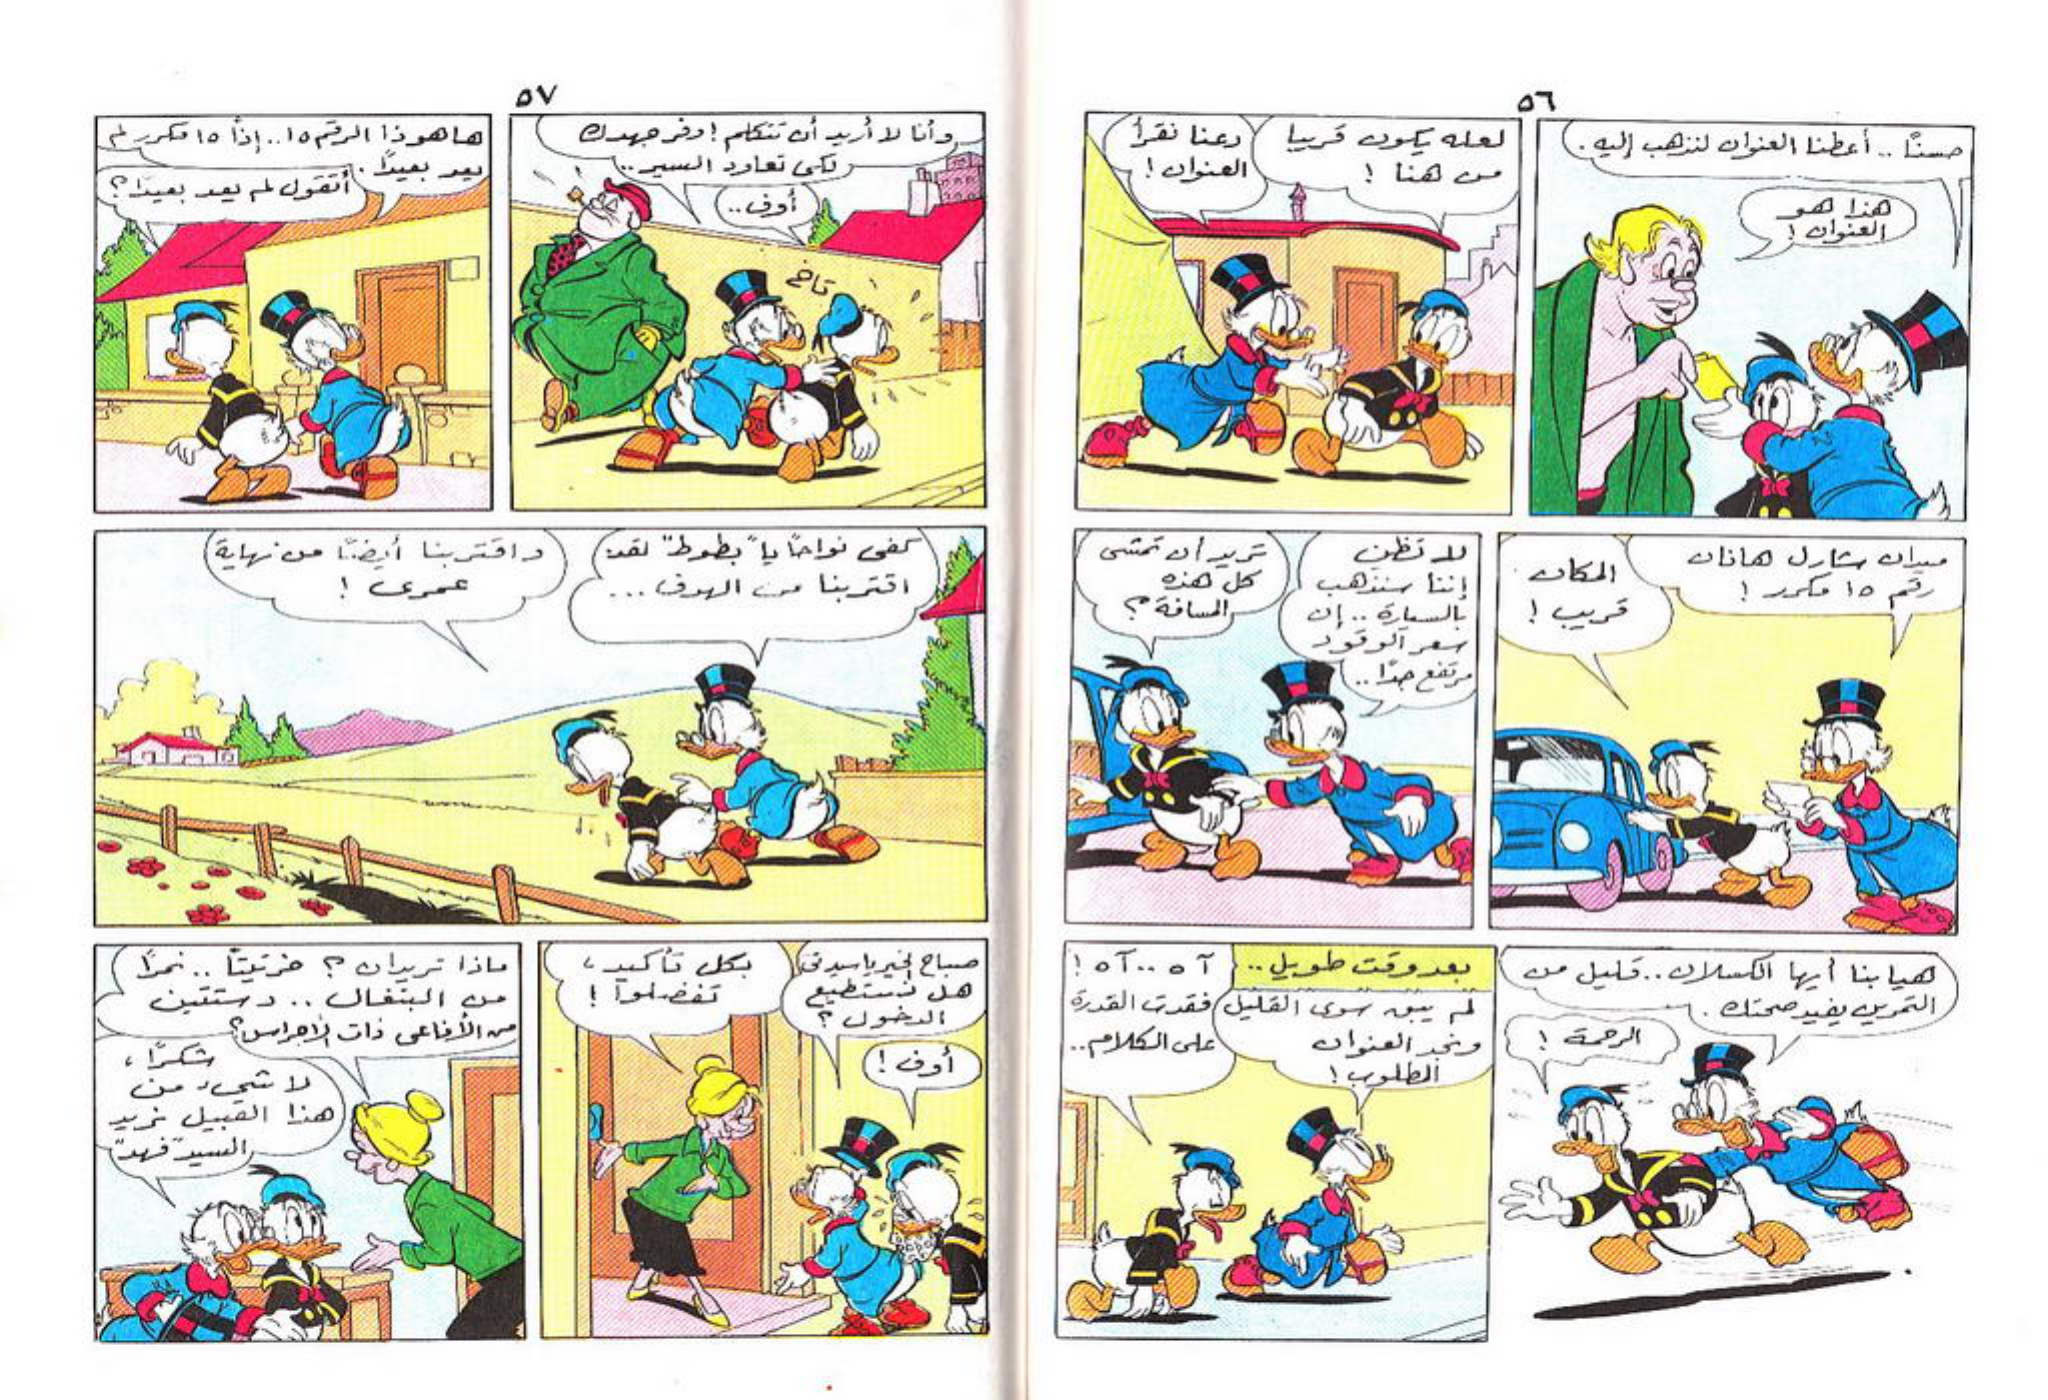 ٥٦
حسنًا .. أعطنا العنوان لنذهب إليه .
هذا هو
العنوان !
لعله يكون قريبا
من هنا !
دعنا نقرأ
العنوان !
ميدان شارل هاذان
رقم ١٥ مكرر !
المكان
قريب !
لا تظن
إننا سنذهب
بالسيارة .. إن
سعر الوقود
مرتفع جدًا ..
تريد أن تمشى
كل هذه
المسافة ؟
هيا بنا أيها الكسلان .. قليل من
التمرين يفيد صحتك .
الرحمة !
بعد وقت طويل ..
لم يبق سوى القليل
ونجد العنوان
المطلوب !
آه .. آه !
فقدت القدرة
على الكلام ..
٥٧
وأنا لا أريد أن تتكلم ! وفر جهدك
لكى تعاود السير ..
أوف ..
تاخ
ها هو ذا الرقم ١٥ .. إذًا ١٥ مكرر لم
يعد بعيدًا .
أتقول لم يعد بعيدًا ؟
كفى نواحًا يا "بطوط" لقد
اقتربنا من الهدف ...
واقتربنا أيضًا من نهاية
عمرى !
صباح الخير يا سيدتى
هل نستطيع
الدخول ؟
أوف !
بكل تأكيد ،
تفضلوا !
ماذا تريدان ؟ خرتيتًا .. نمرًا
من البنغال .. دستتين
من الأفاعى ذات الأجراس ؟
شكرًا ،
لا شىء من
هذا القبيل نريد
السيد "فهد"